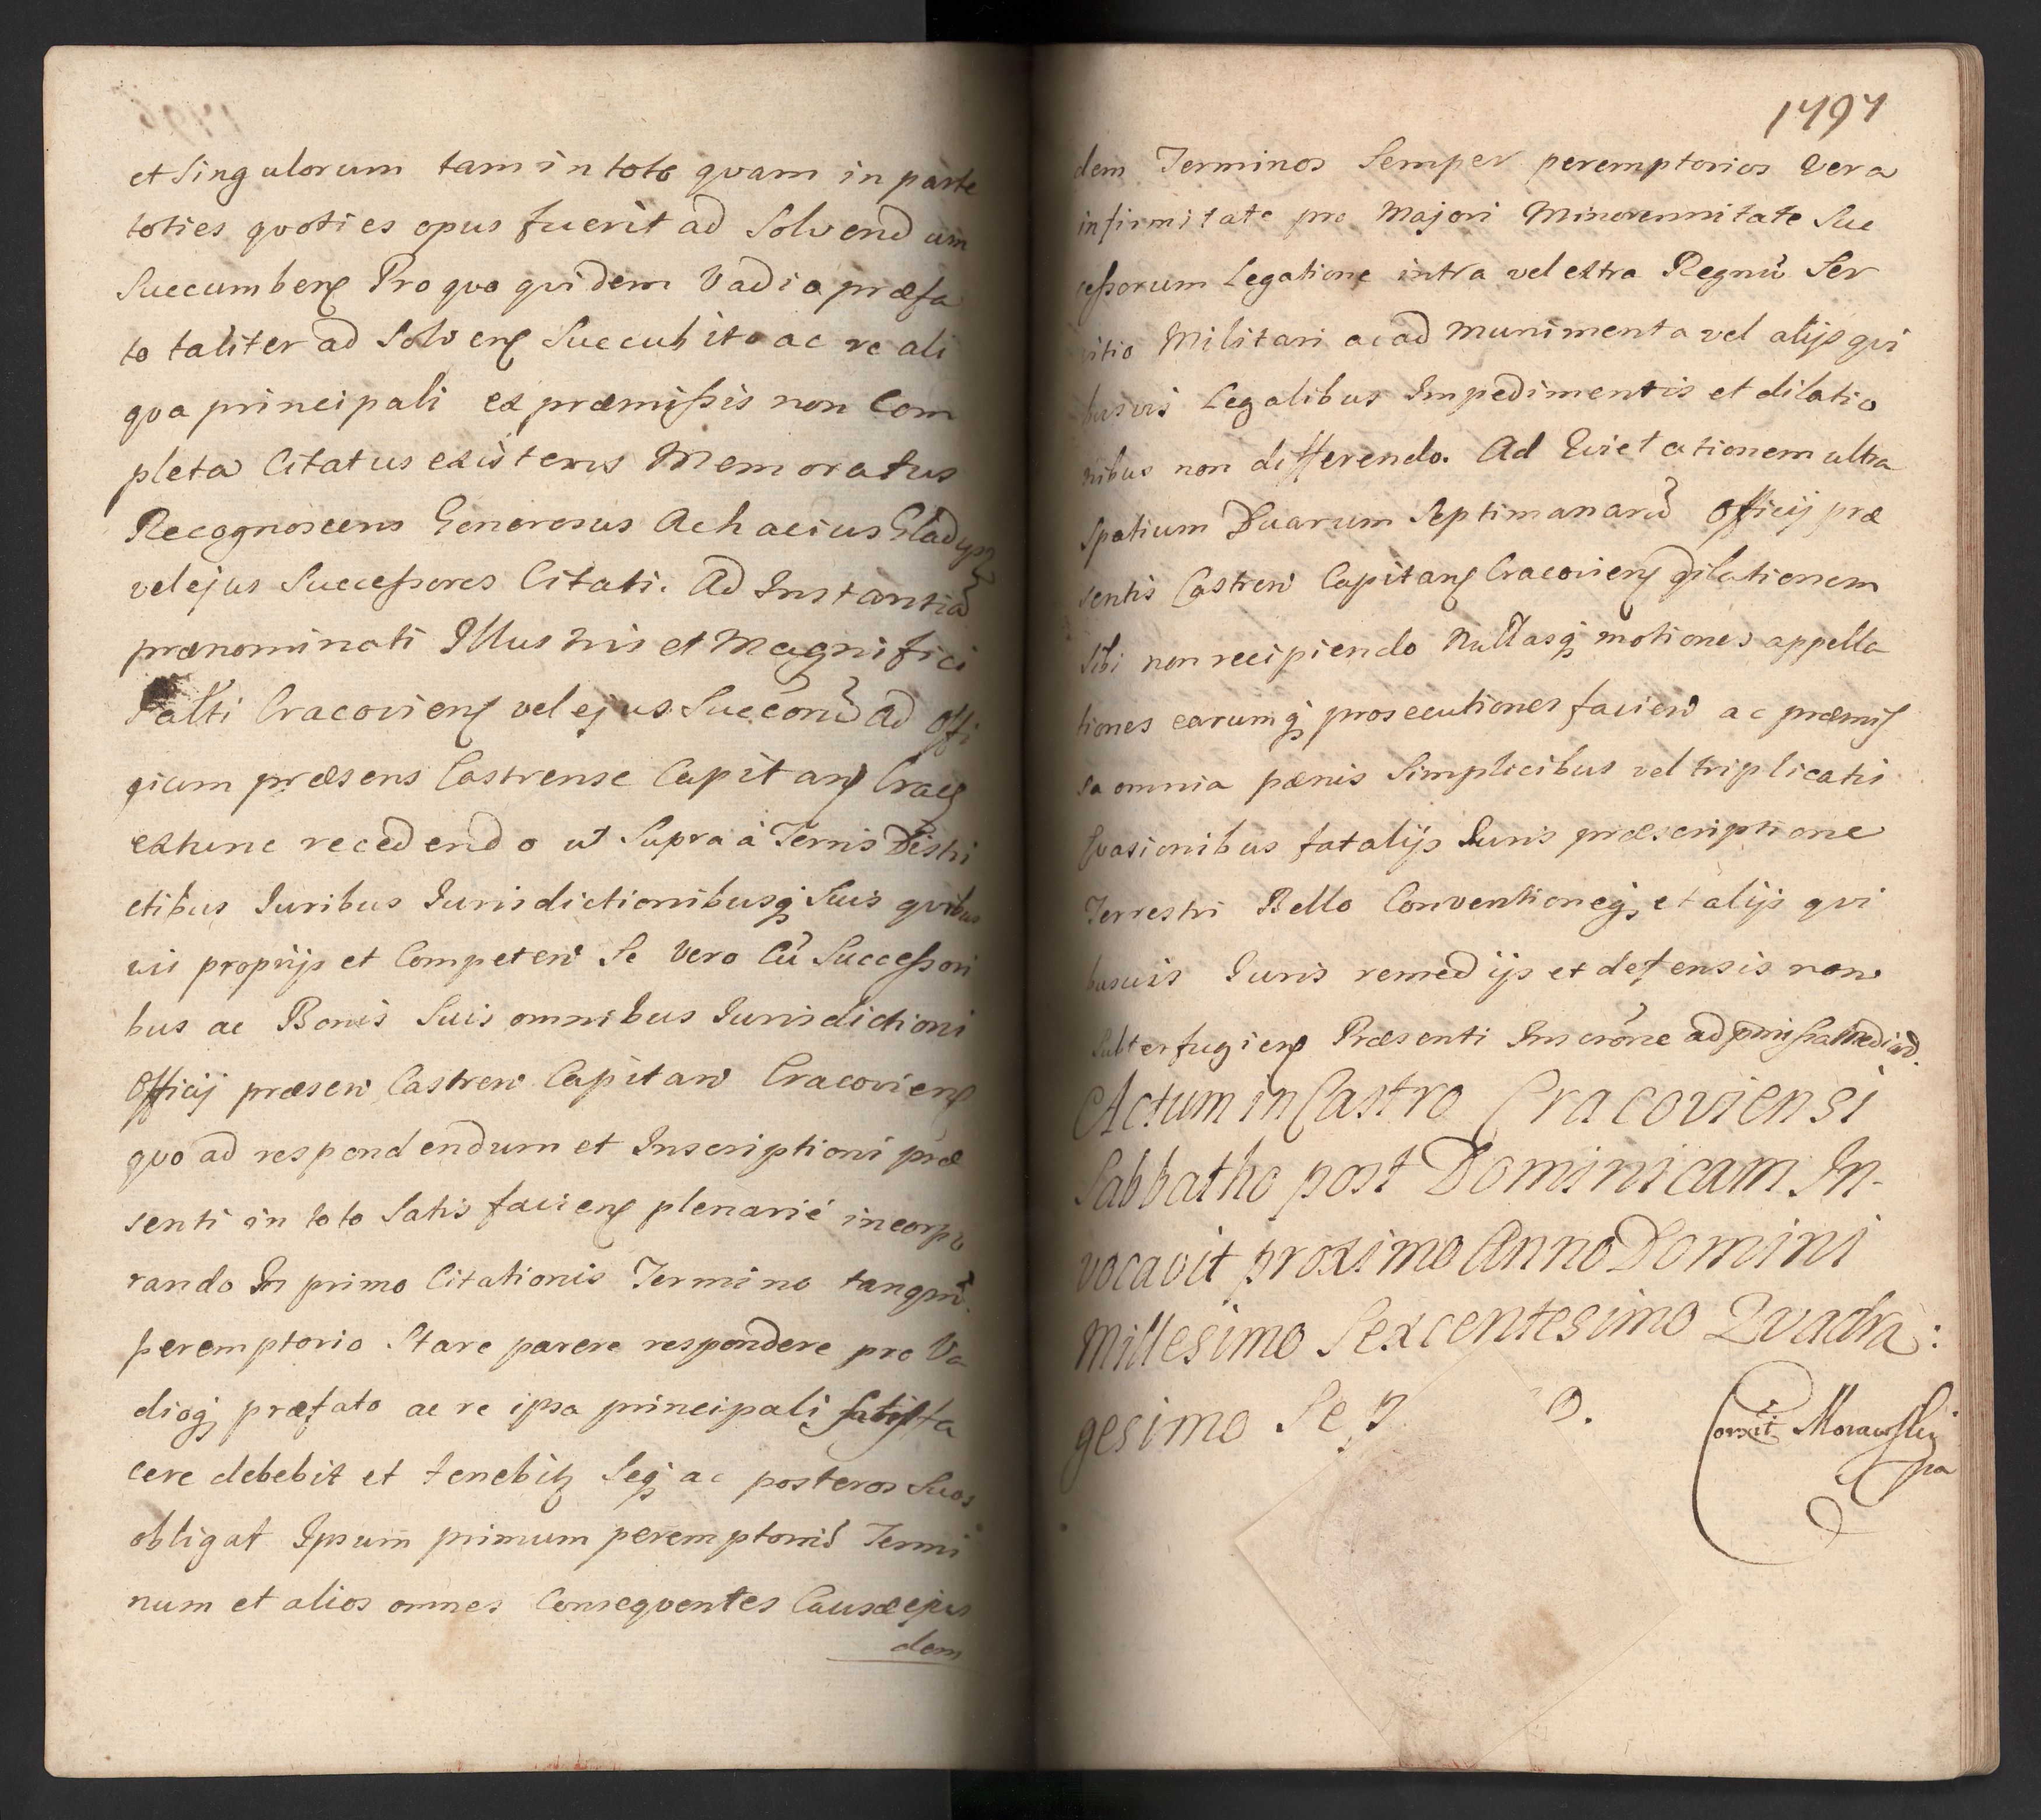 et Singulorum tam in toto qvam in parte
toties qvoties opus fuerit ad Solvendum
Succumbens Pro qvo qvidem Vadio præfa
to taliter ad Solvens Succubito ac re ali
qva principali ex præmissis non Com
pleta Citatus existens Memoratus
Recognoscens Generosus Achacius Gladysz
vel ejus Successores Citati. Ad Instantiã
prænominati Illustris et Magnifici
Palti Craceviens vel ejus Succorũ Ad Offi
cium præsens Castrense Capitan Crac
extunc recedendo ut Supra à Terris Distri
ctibus Iuribus Iurisdictionibusq Suis qvibus
vis proprijs et Competen Se Vero Cũ Successori
bus ac Bonis Suis omnibus Iurisdictioni
Officij præsen Castren Capitan Cracoviens
qvo ad respondendum et Inscriptioni præ
senti in toto Satis faciens plenarié incorpo
rando In primo Citationis Termino tanqm
peremptorio Stare parere respondere pro Va
dioq præfato ac re ipsa principali satisfa
cere debebit et tenebit Seq ac posteros Suos
obligat Ipsum primum peremptoriũ Termi
num et alios omnes Conseqventes Causæ ejus
dem
1797
dem Terminos Semper peremptorios Vera
infirmitate pro Majori Minorennitate Suc
cessorum Legatione intra vel extra Regnũ Ser
vitio Militari ac ad munimenta vel alijs qvi
busvis Legalibus Impedimentis et dilatio
nibus non differendo. Ad Evictationem ultra
Spatium Duarum Septimanarũ Officij præ
sentis Castren Capitan Cracoviens dilationem
Sibi non recipiendo Nullasq motiones appella
tiones earumq prosecutiones facien ac præmis
sa omnia pænis Simplicibus vel triplicatis
Evasionibus fatalijs Iuris præscriptione
Terrestri Bello Conventioneq et alijs qvi
busvis Iuris remedijs et defensis non
Subterfugiens Præsenti Inscrõne ad præmissa mediañ.
Actum in Castro Cracoviensi
Sabbatho post Dominicam In-
vocavit proximo Anno Domini
Millesimo Sexcentesimo Qvadra:
gesimo Sep o.
Correxit Morawski
mp